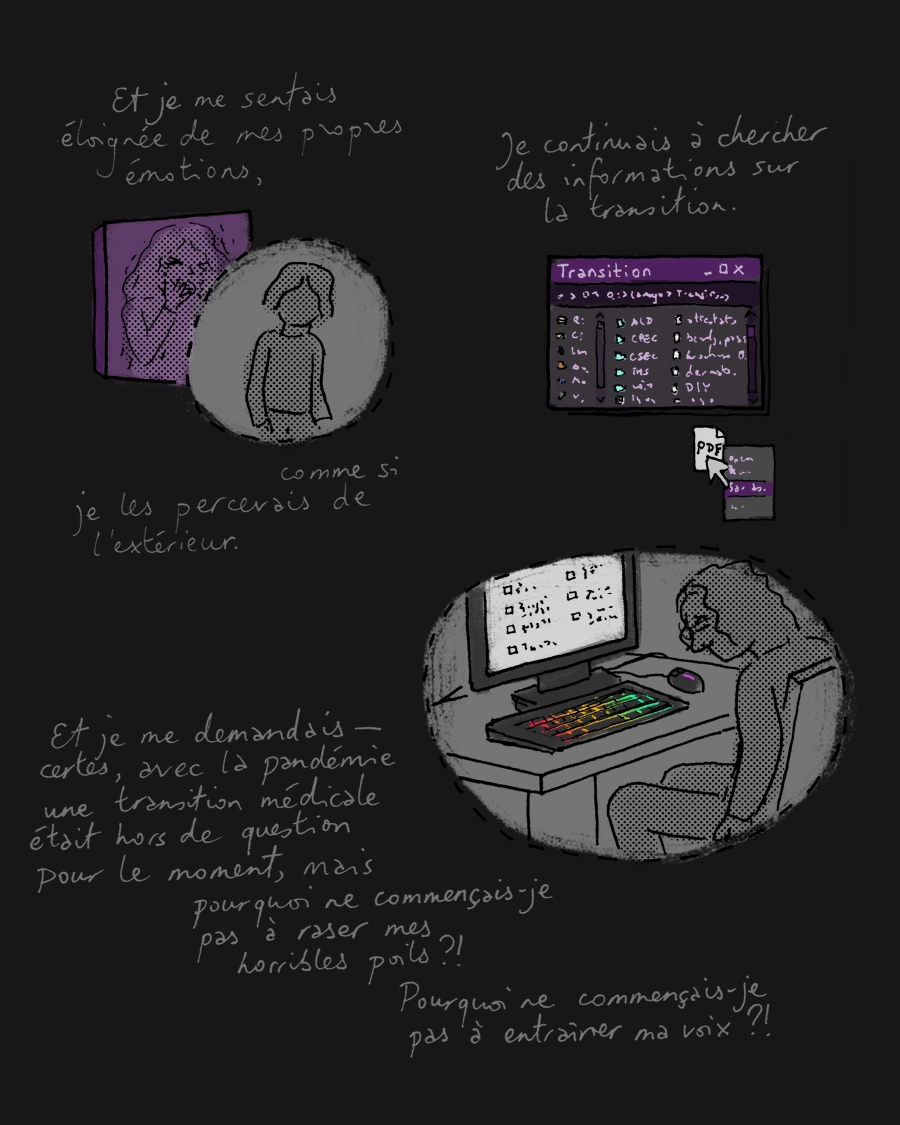 Et je me sentais
éloignée de mes propres
émotions,
comme si
je les percevais de
l'extérieur.
Je continuais à chercher
des informations sur
la transition.
Transition
ALD
CPEC
CSEC
DIY
PDF
Et je me demandais —
certes, avec la pandémie
une transition médicale
était hors de question
pour le moment, mais
pourquoi ne commençais-je
pas à raser mes
horribles poils ?!
Pourquoi ne commençais-je
pas à entraîner ma voix ?!